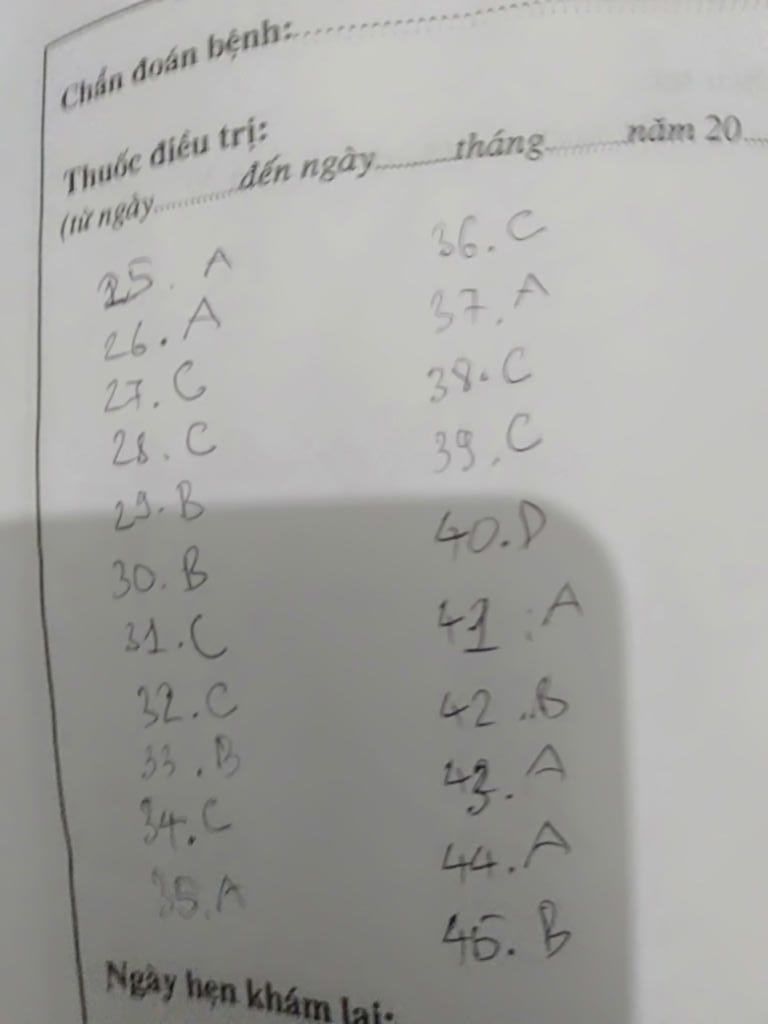 Chẩn đoán bệnh:
Thuốc điều trị:
(từ ngày............đến ngày...........tháng...........năm 20....
25. A
26. A
27. C
28. C
29. B
30. B
31. C
32. C
33. B
34. C
35. A
36. C
37. A
38. C
39. C
40. D
41. A
42. B
43. A
44. A
45. B
Ngày hẹn khám lại: